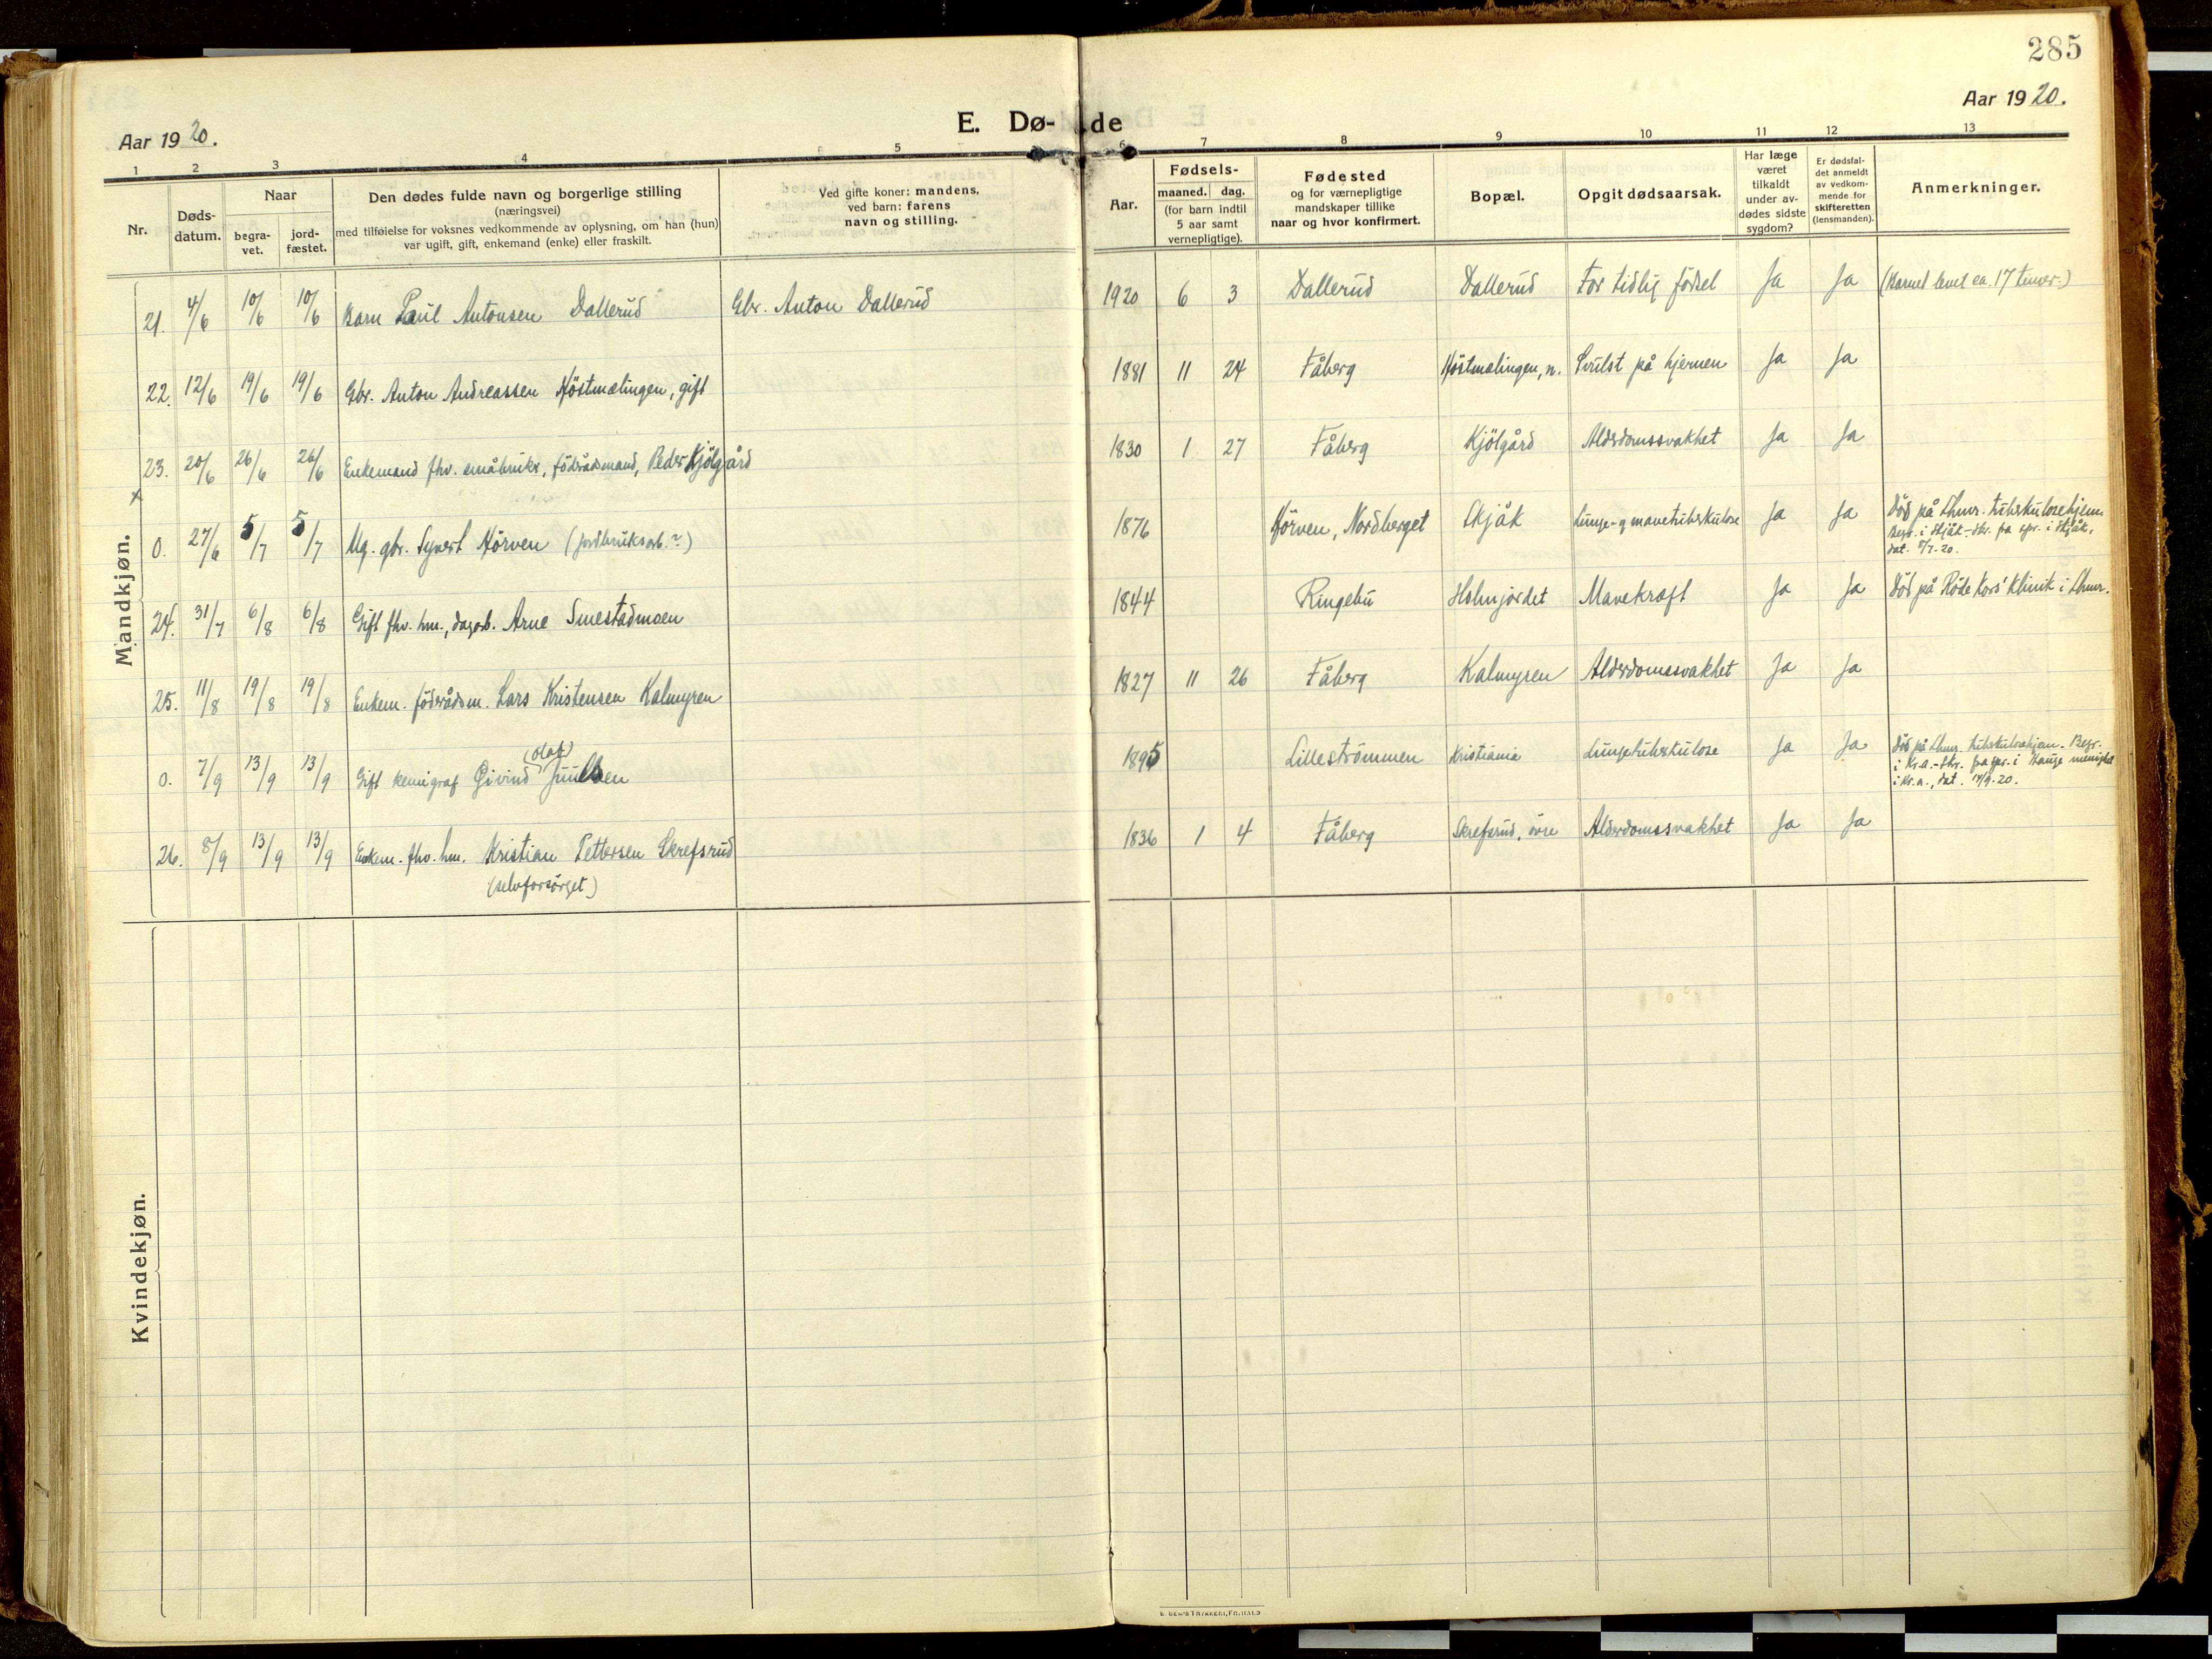 285
Aar 1920.
Aar 1920.
E. Dø-de
1 2 3 4 5 6 7 8 9 10 11 12 13
Nr.
Døds-
datum.
Naar
begra-
vet.
jord-
fæstet.
Den dødes fulde navn og borgerlige stilling
(næringsvei)
med tilføielse for voksnes vedkommende av oplysning, om han (hun)
var ugift, gift, enkemand (enke) eller fraskilt.
Ved gifte koner: mandens,
ved barn: farens
navn og stilling.
Aar.
Fødsels-
maaned. dag.
(for barn indtil
5 aar samt
vernepligtige).
Fødested
og for værnepligtige
mandskaper tillike
naar og hvor konfirmert.
Bopæl.
Opgit dødsaarsak.
Har læge
været
tilkaldt
under av-
dødes sidste
sygdom?
Er dødsfal-
det anmeldt
av vedkom-
mende for
skifteretten
(lensmanden).
Anmerkninger.
Mandkjøn.
21. 4/6 10/6 10/6 Barn Paul Antonsen Dallerud Gbr. Anton Dallerud 1920 6 3 Dallerud Dallerud For tidlig födsel Ja Ja (Barnet levet ca. 17 timer.)
22. 12/6 19/6 19/6 Gbr. Anton Andreassen Höstmælingen, gift 1881 11 24 Fåberg Höstmælingen, n. Svulst på hjernen Ja Ja
23. 20/6 26/6 26/6 Enkemand fhv. småbruker, föderådsmand, Peder Kjölgård 1830 1 27 Fåberg Kjölgård Alderdomssvakhet Ja Ja
x
0. 27/6 5/7 5/7 Ug. gbr. Syvert Hörven (jordbruksarb.?) 1876 Hörven, Nordberget Skjåk Lunge- og mavetuberkulose Ja Ja Död på Lhmr. tuberkulosehjem.
Begr. i Skjåk - Skr. fra spr. i Skjåk,
dat. 5/7-20.
24. 31/7 6/8 6/8 Gift fhv. hm., dagarb. Arne Smestadmoen 1844 Ringebu Holmjordet Mavekræft Ja Ja Död på Röde Kors' Klinik i Lhmr.
25. 11/8 19/8 19/8 Enkem. föderådsm. Lars Kristensen Kalmyren 1827 11 26 Fåberg Kalmyren Alderdomssvakhet Ja Ja
(Olaf)
0. 7/9 13/9 13/9 Gift kemigraf Øivind Juulsen 1895 Lilleströmmen Kristiania Lungetuberkulose Ja Ja Död på Lhmr. tuberkulosehjem. Begr.
i Kr.a. - Skr. fra spr. i Hauge menighet
i Kr.a., dat. 14/9-20.
26. 8/9 13/9 13/9 Enkem. fhv. hm. Kristian Pettersen Skrefsrud 1836 1 4 Fåberg Skrefsrud, övre Alderdomssvakhet Ja Ja
(selvforsörget)
Kvindekjøn.